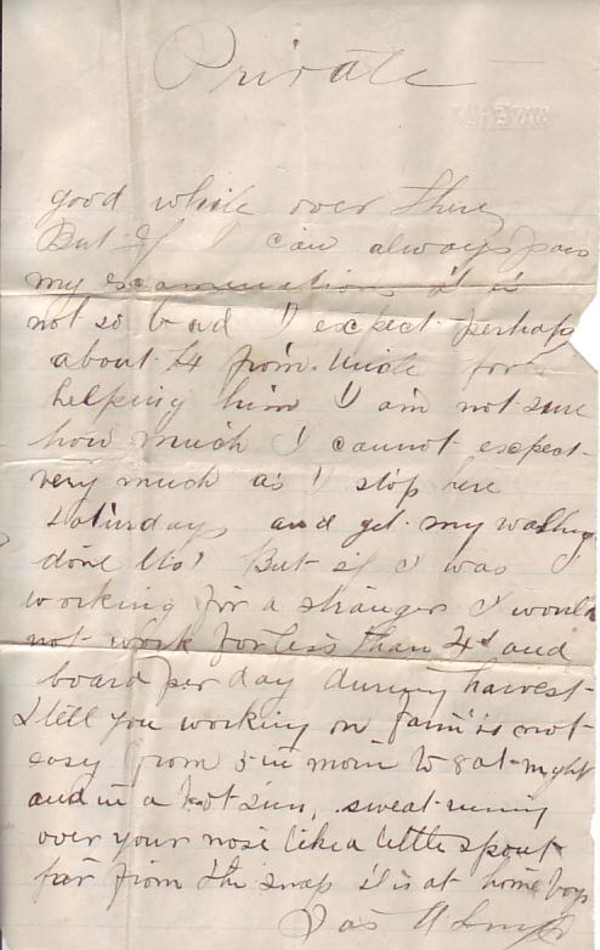 Private
good while over there
But If I can always pass
my examinations it is
not so bad I expect perhaps
about 14 from Uncle for
helping him I am not sure
how much I cannot expect
very much as I stop here
saturdays and get my washing
done &tc But if I was
working for a stranger I would
not work for less than and
board per day during harvest
I tell you working on farm is not
easy from 5 in morn to 8 at night
and in a hot sun, sweat runing
over your nose like a little spout
far from the snap it is at home boys
Jas